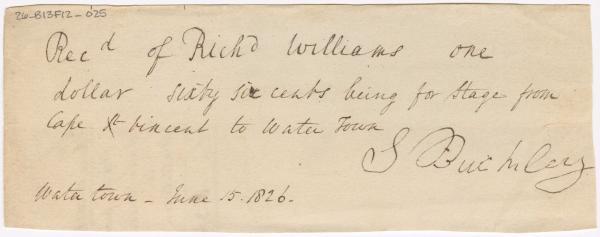 26-B13F12-025
Recd of Richd Williams one
dollar sixty six cents being for Stage from
Cape St Vincent to Water Town
S Buckley
Water town - June 15. 1826.